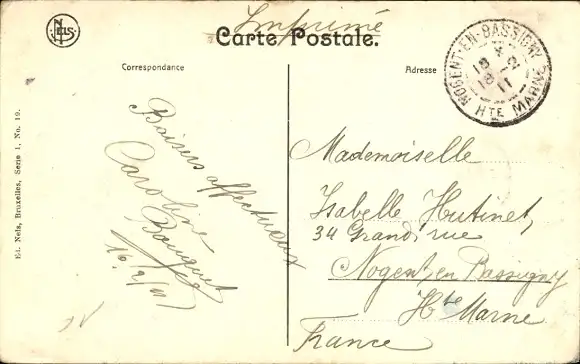 Imprimé
NELS
Carte Postale.
Correspondance
Adresse
NOGENT-EN-BASSIGNY
18
18 -2
11
HTE MARNE
Baisers affectueux
Caroline
Bouquet
16/2/11
Mademoiselle
Isabelle Hutinet,
34 Grand'rue
Nogent en Bassigny
Hte Marne
France
Ed. Nels, Bruxelles, Serie 1, No. 19.